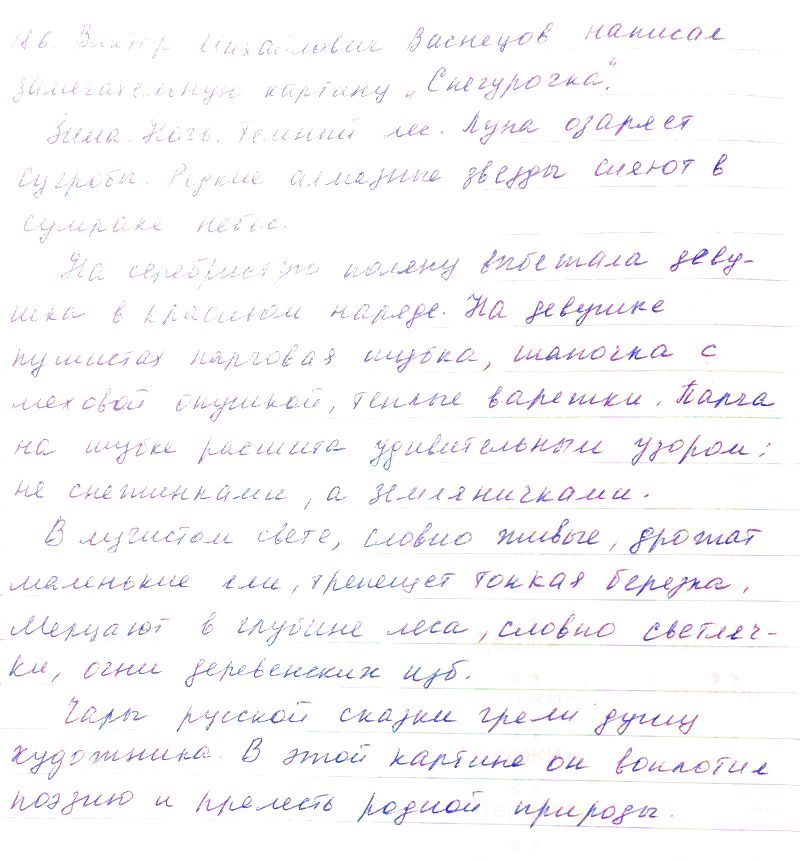 186. Виктор Михайлович Васнецов написал
замечательную картину „Снегурочка“.
Зима. Ночь. Темный лес. Луна озаряет
сугробы. Редкие алмазные звезды сияют в
сумраке небес.
На серебристую поляну выбежала деву-
шка в красивом наряде. На девушке
пушистая парчовая шубка, шапочка с
меховой опушкой, теплые варежки. Парча
на шубке расшита удивительным узором:
не снежинками, а земляничками.
В лучистом свете, словно живые, дрожат
маленькие ели, трепещет тонкая березка.
Мерцают в глубине леса, словно светляч-
ки, огни деревенских изб.
Чары русской сказки грели душу
художника. В этой картине он воплотил
поэзию и прелесть родной природы.